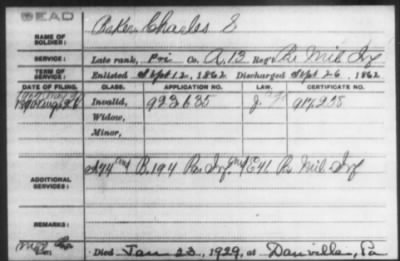 DEAD
NAME OF SOLDIER: Baker Charles E
SERVICE: Late rank, Pri Co. A, 13 Reg't Pa Mil Inf
TERM OF SERVICE: Enlisted Sept 12, 1862 Discharged Sept 26, 1862
DATE OF FILING. CLASS. APPLICATION NO. LAW. CERTIFICATE NO.
1890 Aug Invalid, 922635 J. 917,258
Widow,
Minor,
ADDITIONAL SERVICES: B. 194 Pa Inf. E 41 Pa Mil Inf
REMARKS:
Died Jan 23, 1929, at Danville, Pa